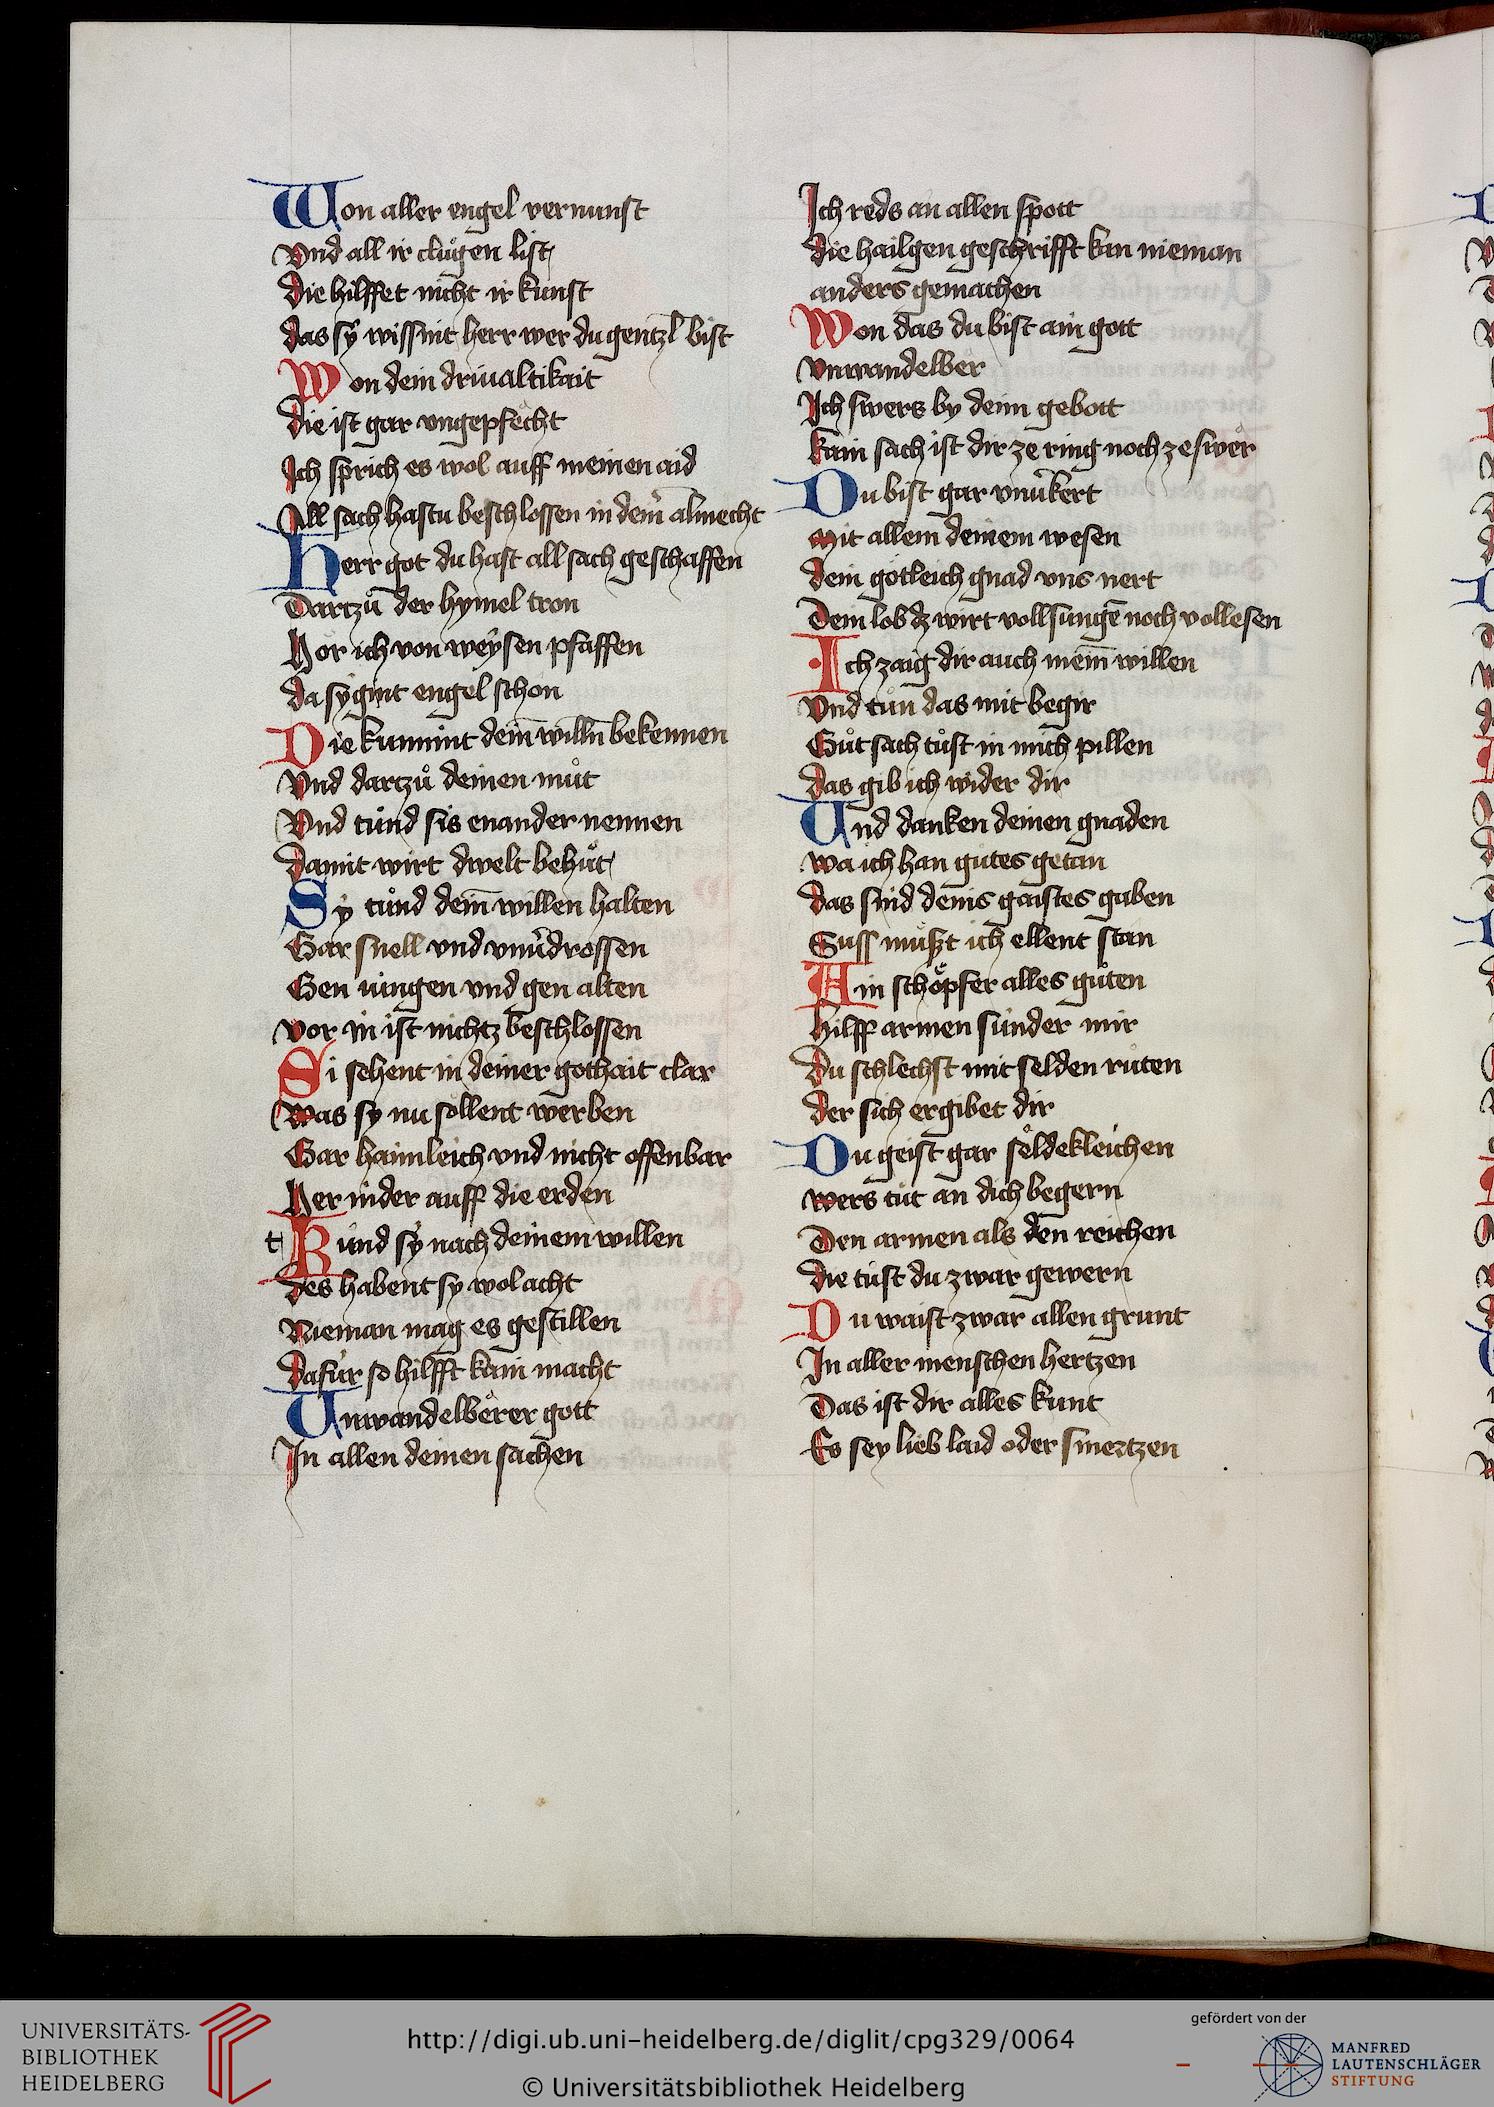 Won aller engel vernunft
Vnd all ir clůgen list
die hilffet nicht ir kunst
das sy wissint herr wer du gentzl̄ bist
Won dein driualtikait
die ist gar vngepfecht
Ich sprich es wol auff meinen aid
All sach hastu beschlossen in dein̄ almecht
Herr got du hast all sach geschaffen
Dartzů der hymel tron
Hor ich von weysen pfaffen
da sy gint engel schon
Die kunnint dein̄ willn̄ bekennen
Vnd dartzů deinen můt
Vnd tůnd sis enander nennen
damit wirt dwelt behůt
Sy tůnd dein̄ willen halten
Gar snell vnd vnu̍drossen
Gen iungen vnd gen alten
vor in ist nichtz beschlossen
Si sehent in deiner gothait clar
Was sy nu söllent werben
Gar haimleich vnd nicht offenbar
Her nider auff die erden
t Kúnd sy nach deinem willen
des habent sy wol acht
Nieman mag es gestillen
dafúr so hilfft kain macht
Vnwandelberer gott
In allen deinen sachen
Ich reds an allen spott
die hailgen geschrifft kan nieman
anders gemachen
Won das du bist ain gott
vnwandelber
Ich swers by deim gebott
kain sach ist dir ze ring noch ze swer
Du bist gar vnu̍kert
mit allem deinem wesen
dein götleich gnad vns nert
Dein lob dz wirt vollsungē noch vollesen
Ich zaig dir auch mein̄ willen
Vnd tůn das mit begir
Gůt sach tůst in mich pillen
das gib ich wider dir
Vnd danken deinen gnaden
wa ich han gůtes getan
das sind deins gaistes gaben
Suss můßt ich ellent stan
Ain schöpfer alles gůten
hilff armen súnder mir
Du schlechst mit selden růten
der sich ergibet dir
Du geist gar seldekleichen
wers tůt an dich begern
Den armen als den reichen
die túst du zwar gewern
Du waist zwar allen grunt
In aller menschen hertzen
Das ist dir alles kunt
Es sey lieb laid oder smertzen
UNIVERSITÄTS-
BIBLIOTHEK
HEIDELBERG
http://digi.ub.uni-heidelberg.de/diglit/cpg329/0064
© Universitätsbibliothek Heidelberg
gefördert von der
MANFRED
LAUTENSCHLÄGER
STIFTUNG